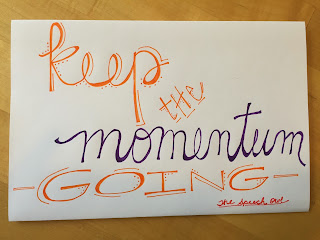 keep
the
momentum
-GOING-
the speech owl